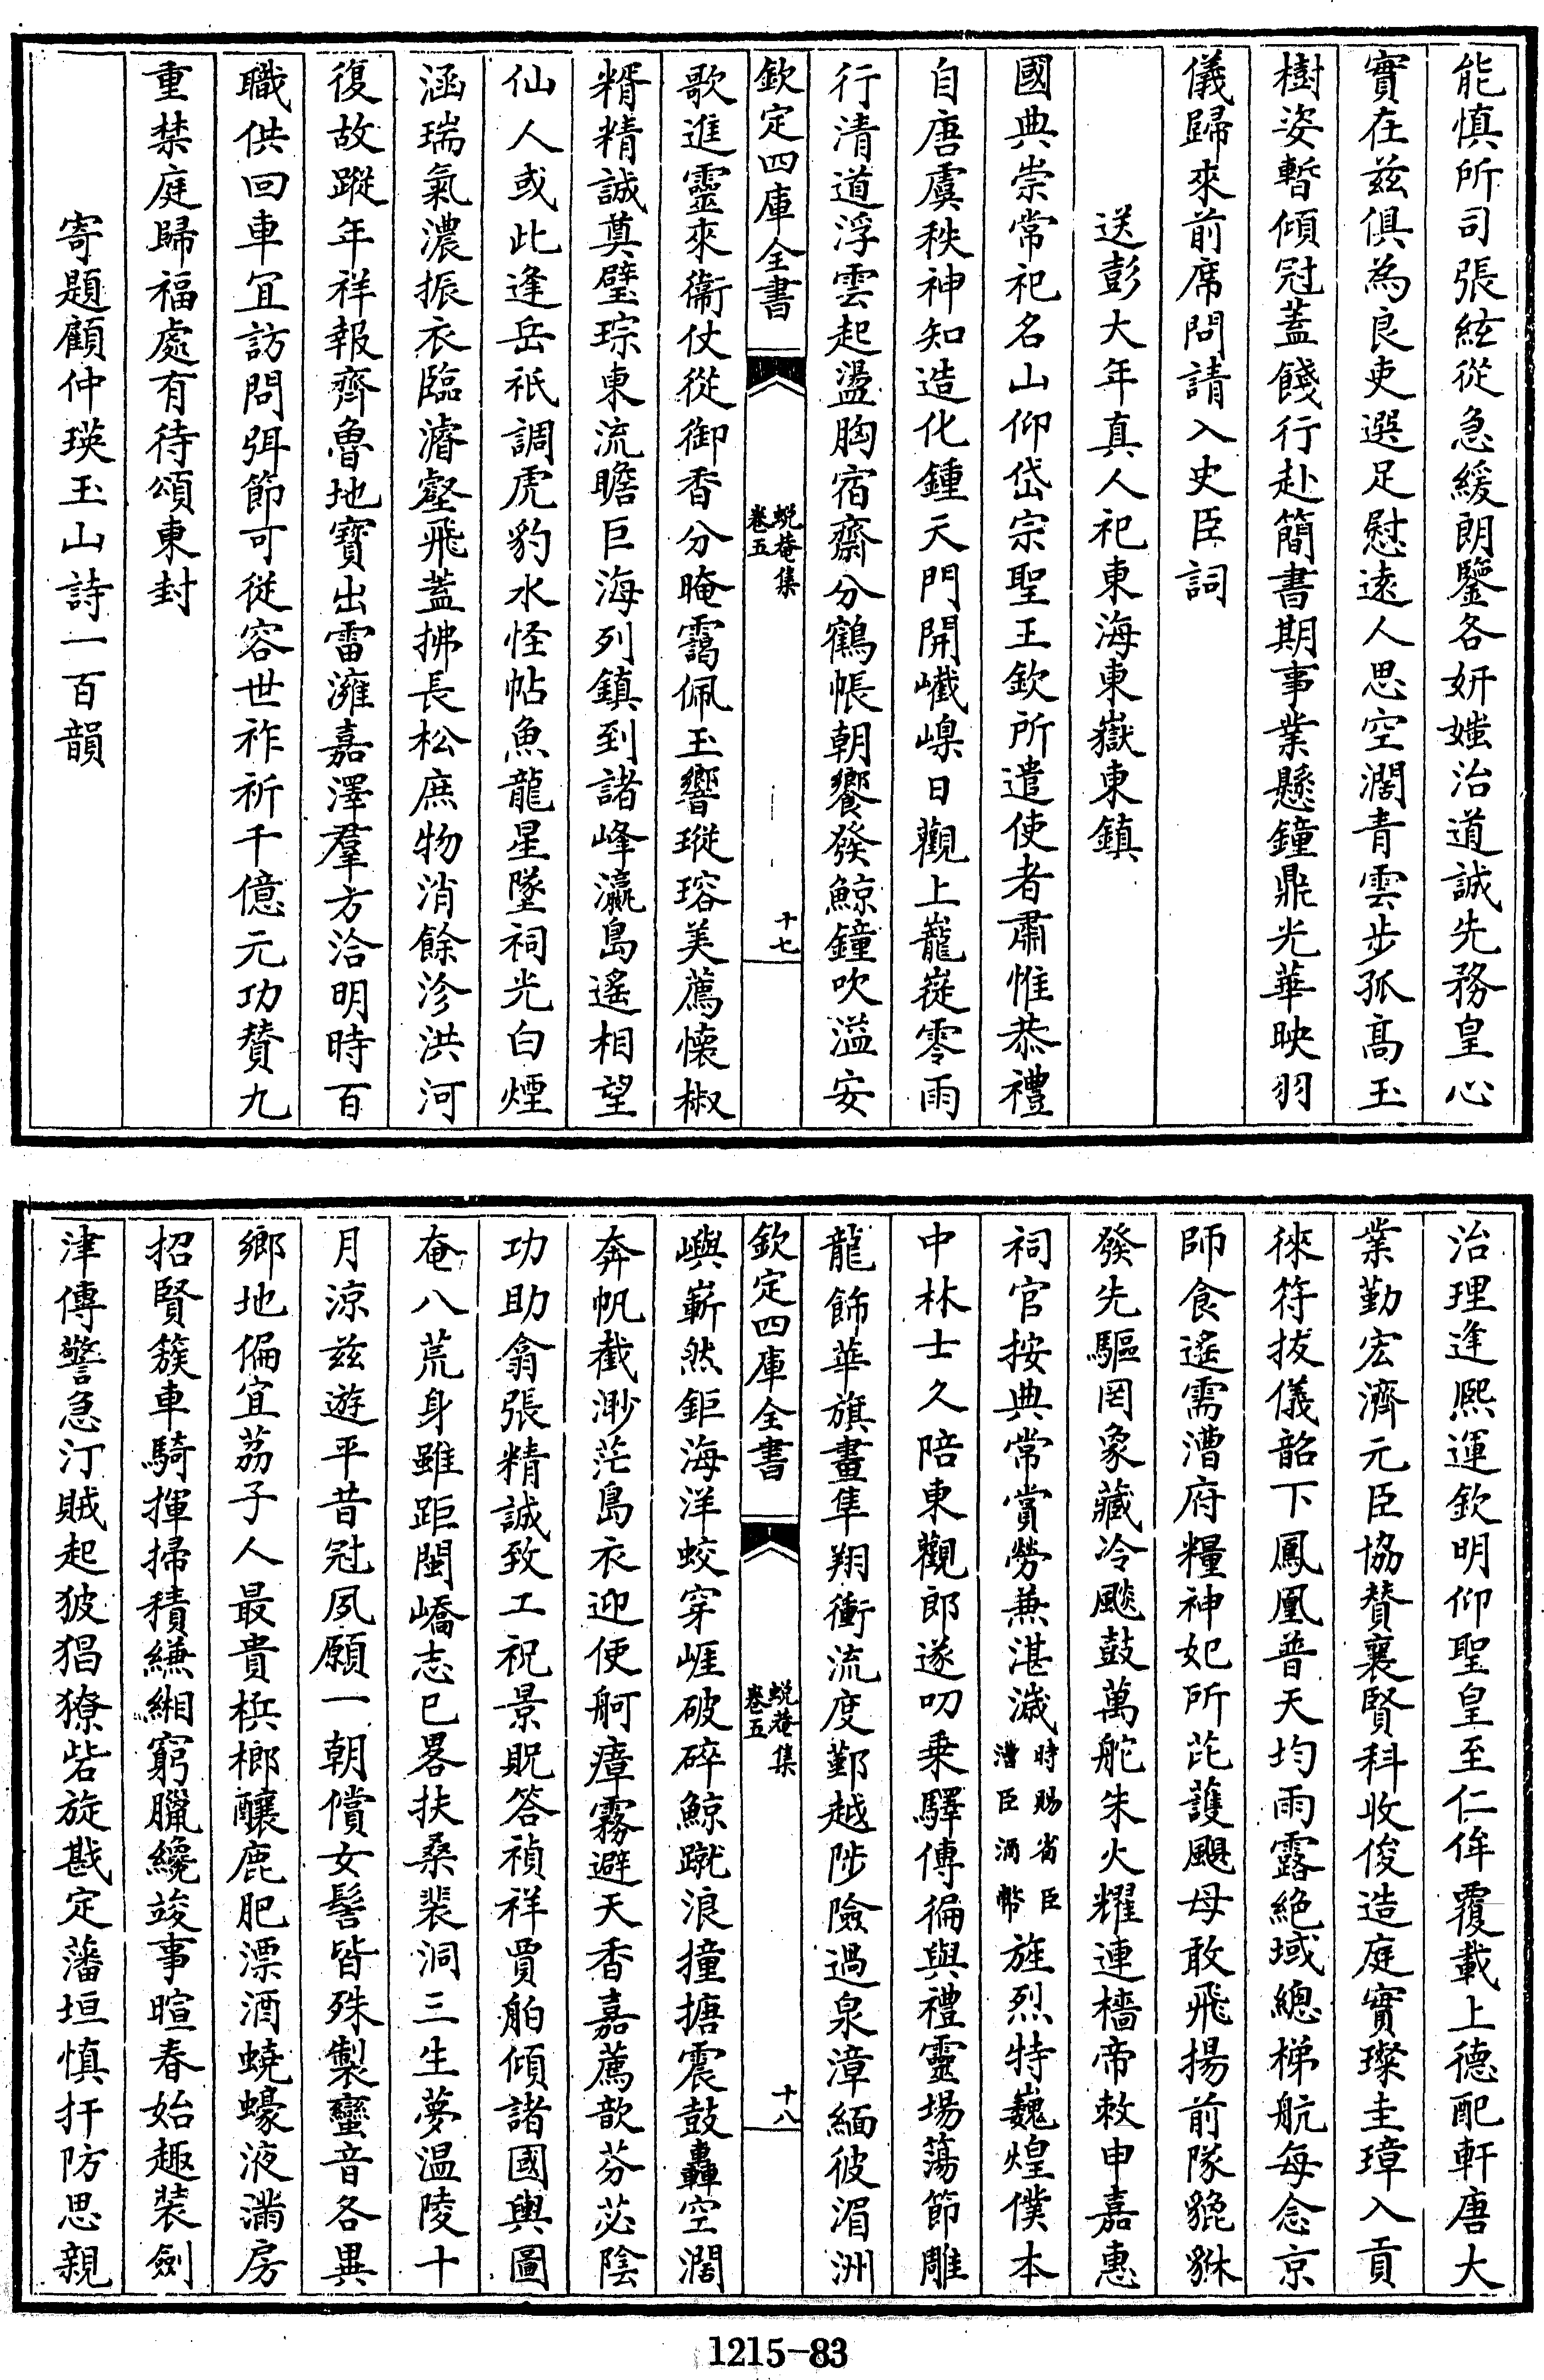 能慎所司張絃從急緩朗鑒各妍媸治道誠先務皇心
實在兹俱為良吏選足慰遠人思空濶青雲步孤高玉
樹姿暫傾冠蓋餞行赴簡書期事業懸鐘鼎光華映羽
儀歸來前席問請入史臣詞
送彭大年真人祀東海東嶽東鎮
國典崇常祀名山仰岱宗聖王欽所遣使者肅惟恭禮
自唐虞秩神知造化鍾天門開嶻嵲日觀上巃嵸零雨
行清道浮雲起盪胸宿齋分鶴帳朝饗發鯨鐘吹溢安
欽定四庫全書
蛻菴集
卷五
十七
歌進靈來衞仗從御香分晻靄佩玉響瑽瑢美薦懷椒
糈精誠奠璧琮東流瞻巨海列鎮到諸峰瀛島遙相望
仙人或此逢岳祇調虎豹水怪帖魚龍星墜祠光白煙
涵瑞氣濃振衣臨濬壑飛蓋拂長松庶物消餘沴洪河
復故蹤年祥報齊魯地寶出雷濰嘉澤羣方洽明時百
職供回車宜訪問弭節可從容世祚祈千億元功贊九
重禁庭歸福處有待頌東封
寄題顧仲瑛玉山詩一百韻
治理逢熈運欽明仰聖皇至仁侔覆載上德配軒唐大
業勤宏濟元臣協贊襄賢科收俊造庭實璨圭璋入貢
徠符拔儀韶下鳳凰普天均雨露絶域總梯航每念京
師食遙需漕府糧神妃所芘護颶母敢飛揚前隊貔貅
發先驅罔象藏冷飈鼓萬舵朱火耀連檣帝敕申嘉惠
祠官按典常賞勞兼湛濊時賜省臣漕臣酒幣旌烈特巍煌僕本
中林士久陪東觀郎遂叨乗驛傳徧與禮靈場蕩節雕
龍飾華旗畫隼翔衝流度鄞越陟險過泉漳緬彼湄洲
欽定四庫全書
蛻菴集
卷五
十八
嶼嶄然鉅海洋蛟穿崕破碎鯨蹴浪撞搪震鼓轟空濶
奔帆截渺茫島衣迎使舸瘴霧避天香嘉薦歆芬苾陰
功助翕張精誠致工祝景貺答禎祥賈舶傾諸國輿圖
奄八荒身雖距閩嶠志已畧扶桑裴洞三生夢温陵十
月涼兹遊平昔冠夙願一朝償女髻皆殊製蠻音各異
鄉地偏宜荔子人最貴梹榔釀鹿肥漂酒蟯蠔液滿房
招賢簇車騎揮掃積縑緗窮臘纔竣事暄春始趣装劍
津傳警急汀賊起狓猖獠砦旋戡定藩垣慎扞防思親
1215-83